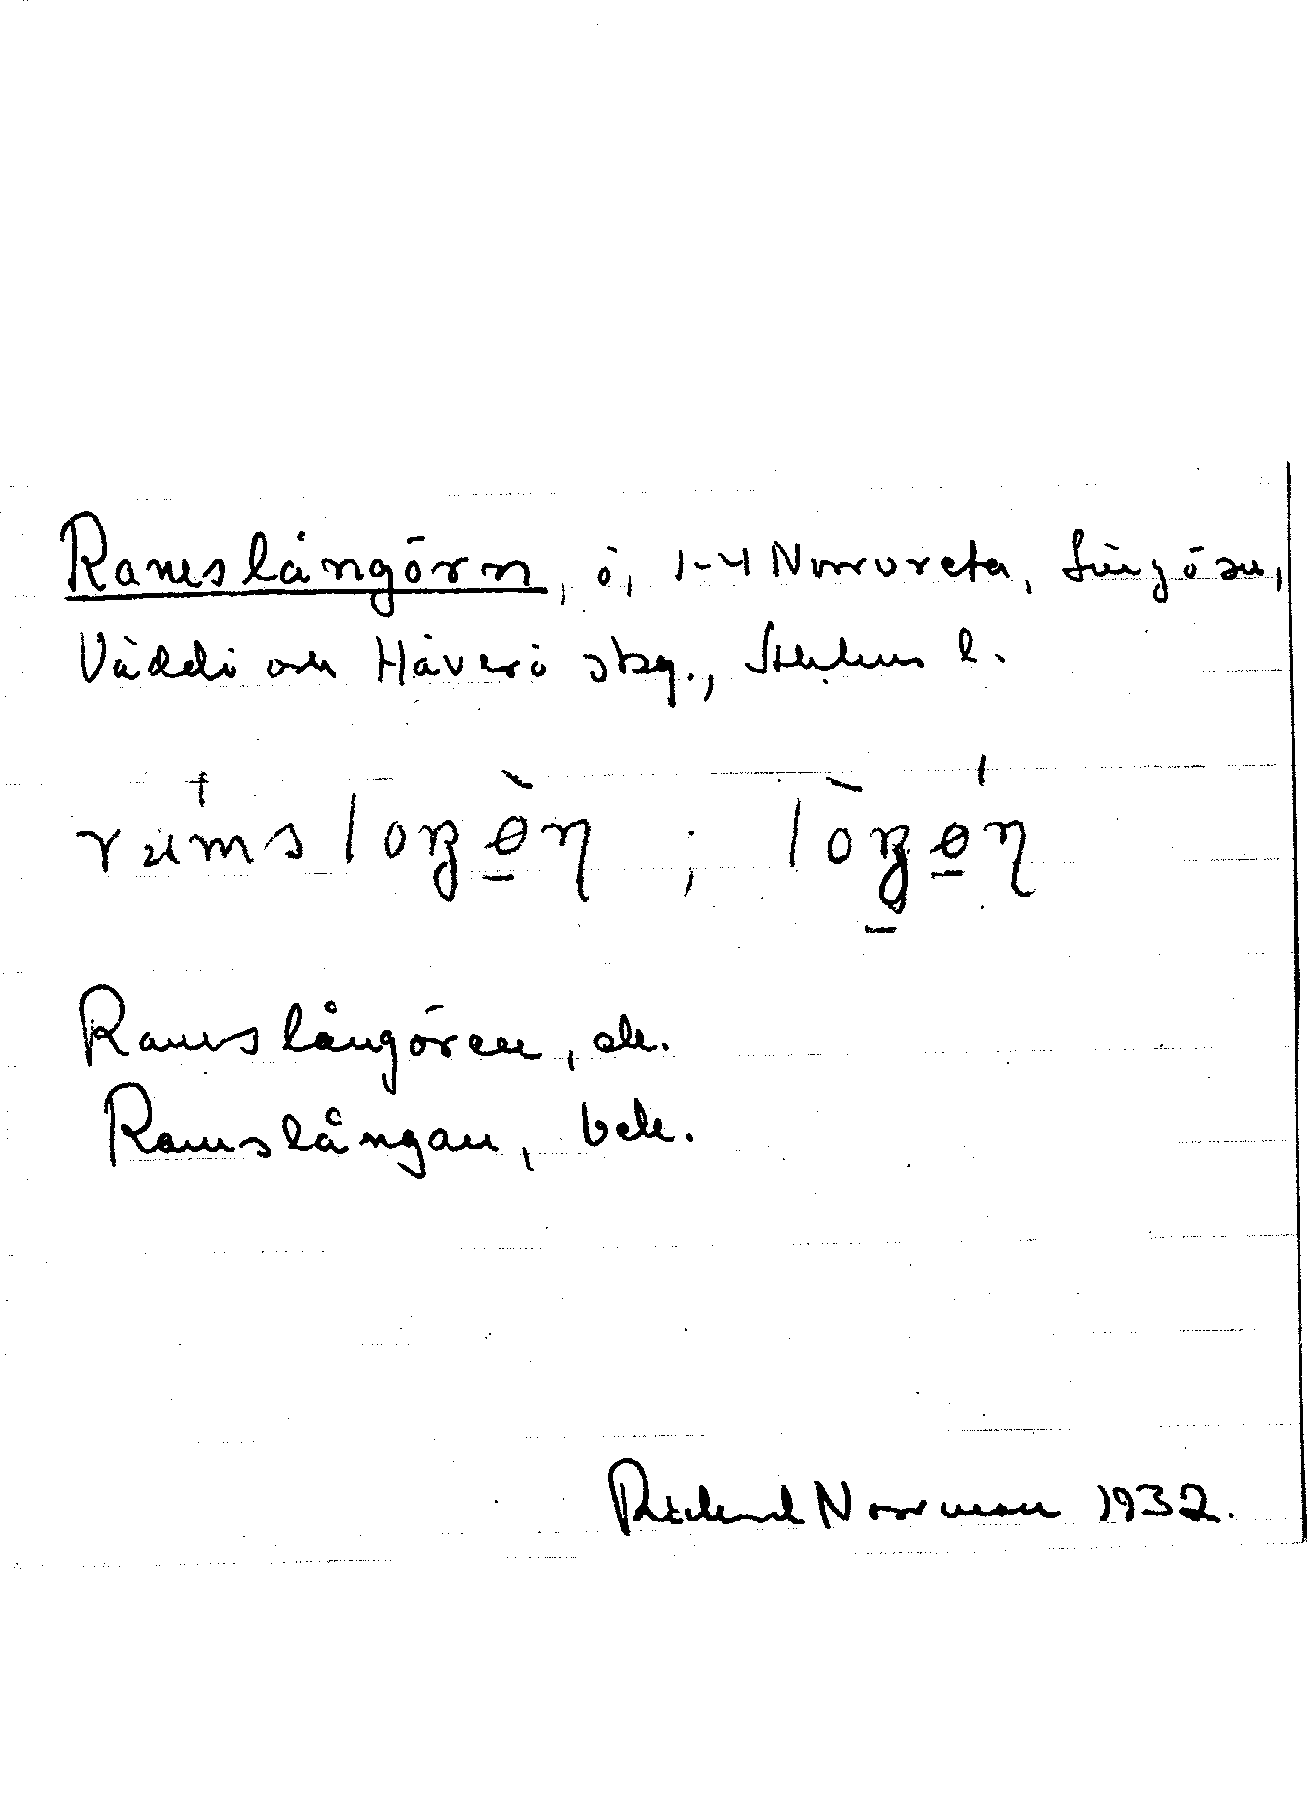 Ramslångörn, ö, 1-4 Norrvreta, Singö sn,
Väddö och Häverö skg., Sthlms l.
Ramslångören, ek.
Ramslångan, bek.
Rickard Norrman 1932.